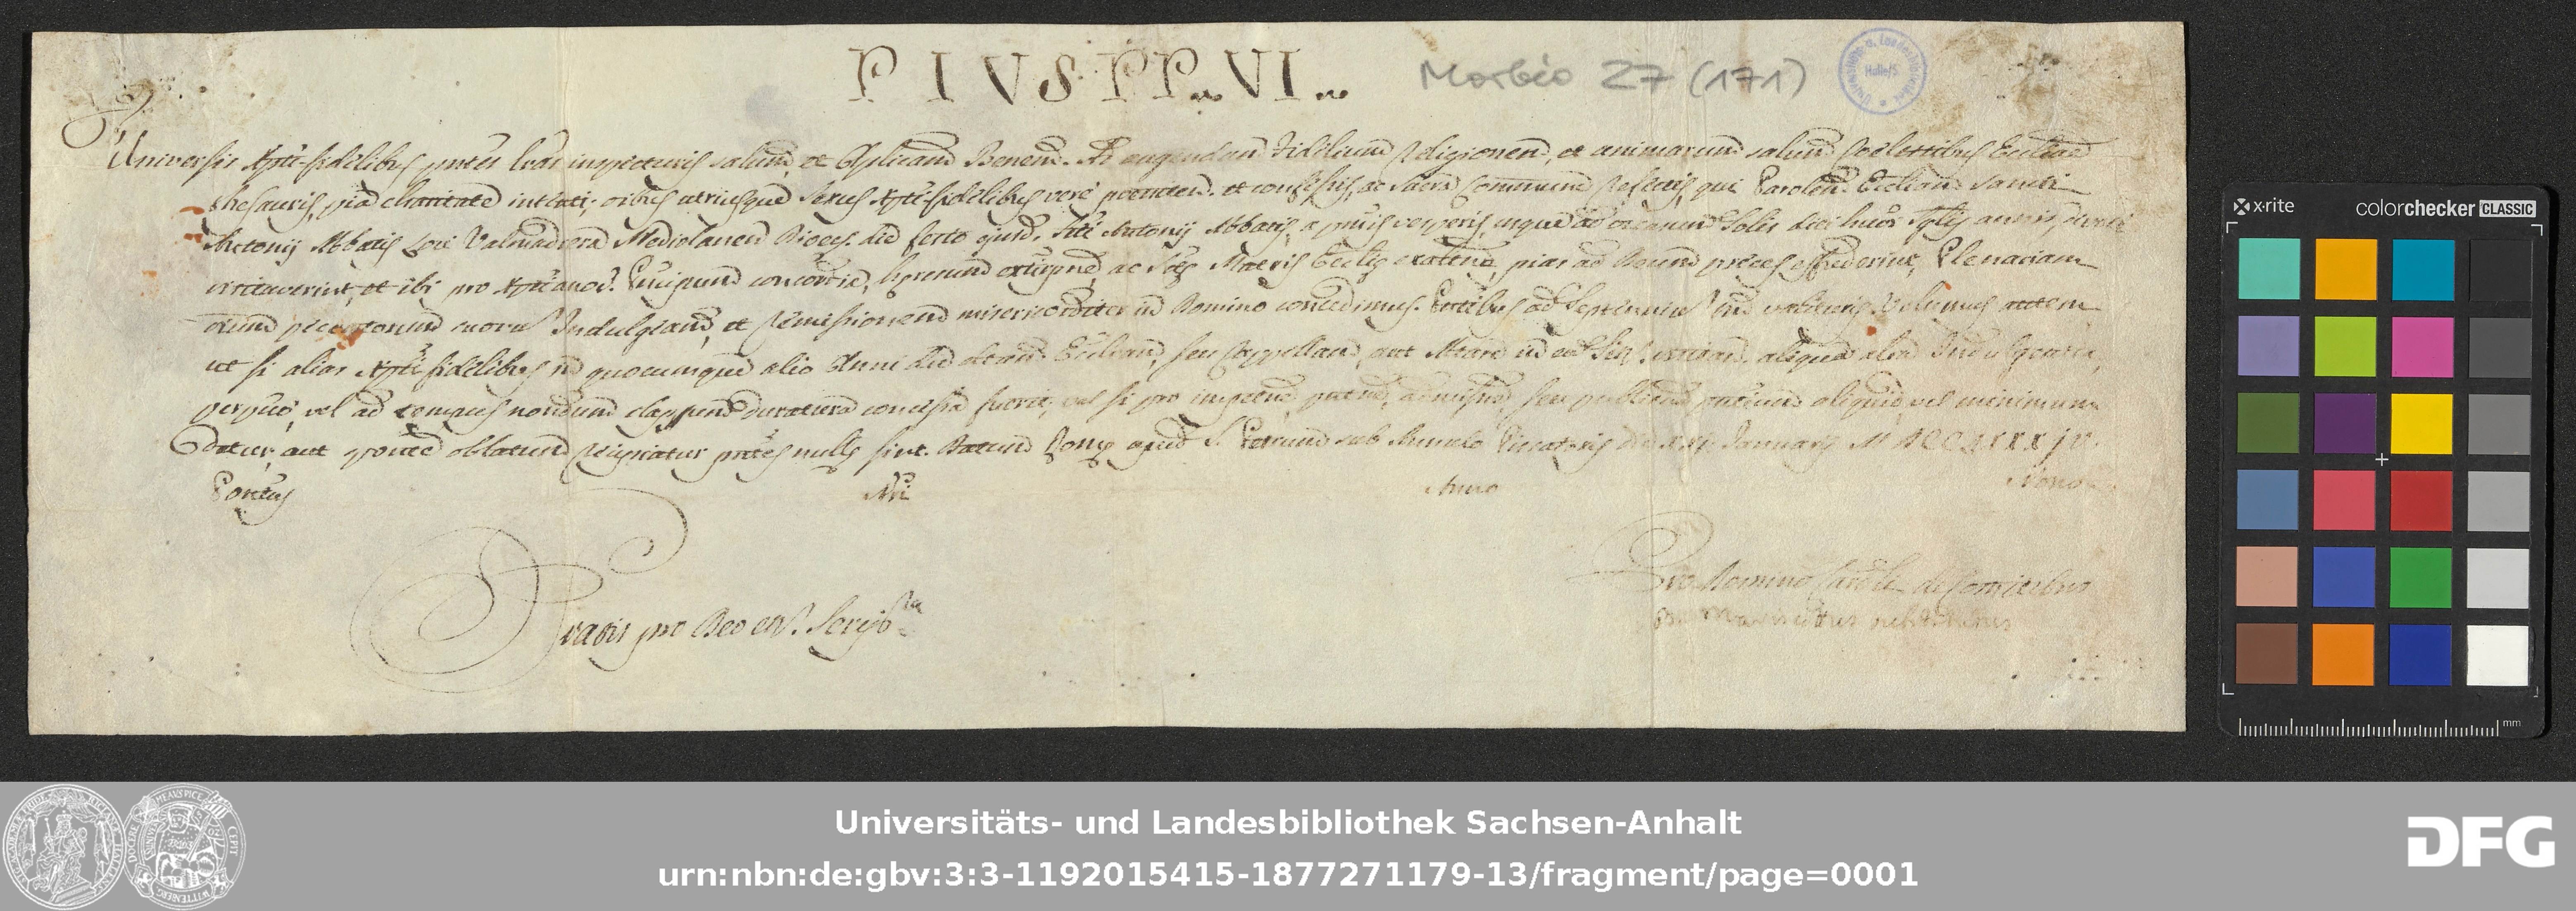 PIUS PP. VI.
Morbio 27 (171)
Universitäts u. Landesbibliothek Halle/S.
Universis Xpti fidelibus pntes lras inspecturis salutem, et Aplicam Benem. Ad augendam Fidelium Religionem, et animarum salutem Coelestibus Ecclie
thesauris pia charitate intenti, oibus utriusque sexus Xpti fidelibus vere penitend. et confessis, ac Sacra Communione refectis, qui Parolem Eccliam Sancti
Antonij Abbatis Loci Valmadrera Mediolanen Dioec. die festo ejusd. Sti Antonij Abbatis, a primis vesperis usque ad occasum Solis diei hujus sglis annis devote
visitaverint, et ibi pro Xptianor. Principum concordia, heresum extirpne, ac Ste Matris Ecclie exaltne, pias ad Deum preces effuderint, Plenariam
oium peccatorum suorum Indulgiam, et remissionem misericorditer in Domino concedimus. Pntibus ad Septennium tm valituris. Volumus autem
ut si alias Xpti fidelibus in quocumque alio Anni die dictam Eccliam, seu Cappellam, aut Altare in ea Sit. visitand. aliqua alia Indulgentia
perpuo, vel ad tempus nondum elapsum duratura concessa fuerit, vel si pro impetne, pntne, admissne, seu publicne pntium aliquid vel minimum
detur, aut sponte oblatum recipiatur pntes nulle sint. Datum Rome apud S. Petrum sub Annulo Piscatoris die Januarij MDCCLXXXIV.
Pontus Nri Anno Nono
Gratis pro Deo et Script
Pro Domino Card. de Comitibus
substitutus
x-rite colorchecker CLASSIC
mm
Universitäts- und Landesbibliothek Sachsen-Anhalt
urn:nbn:de:gbv:3:3-1192015415-1877271179-13/fragment/page=0001
DFG